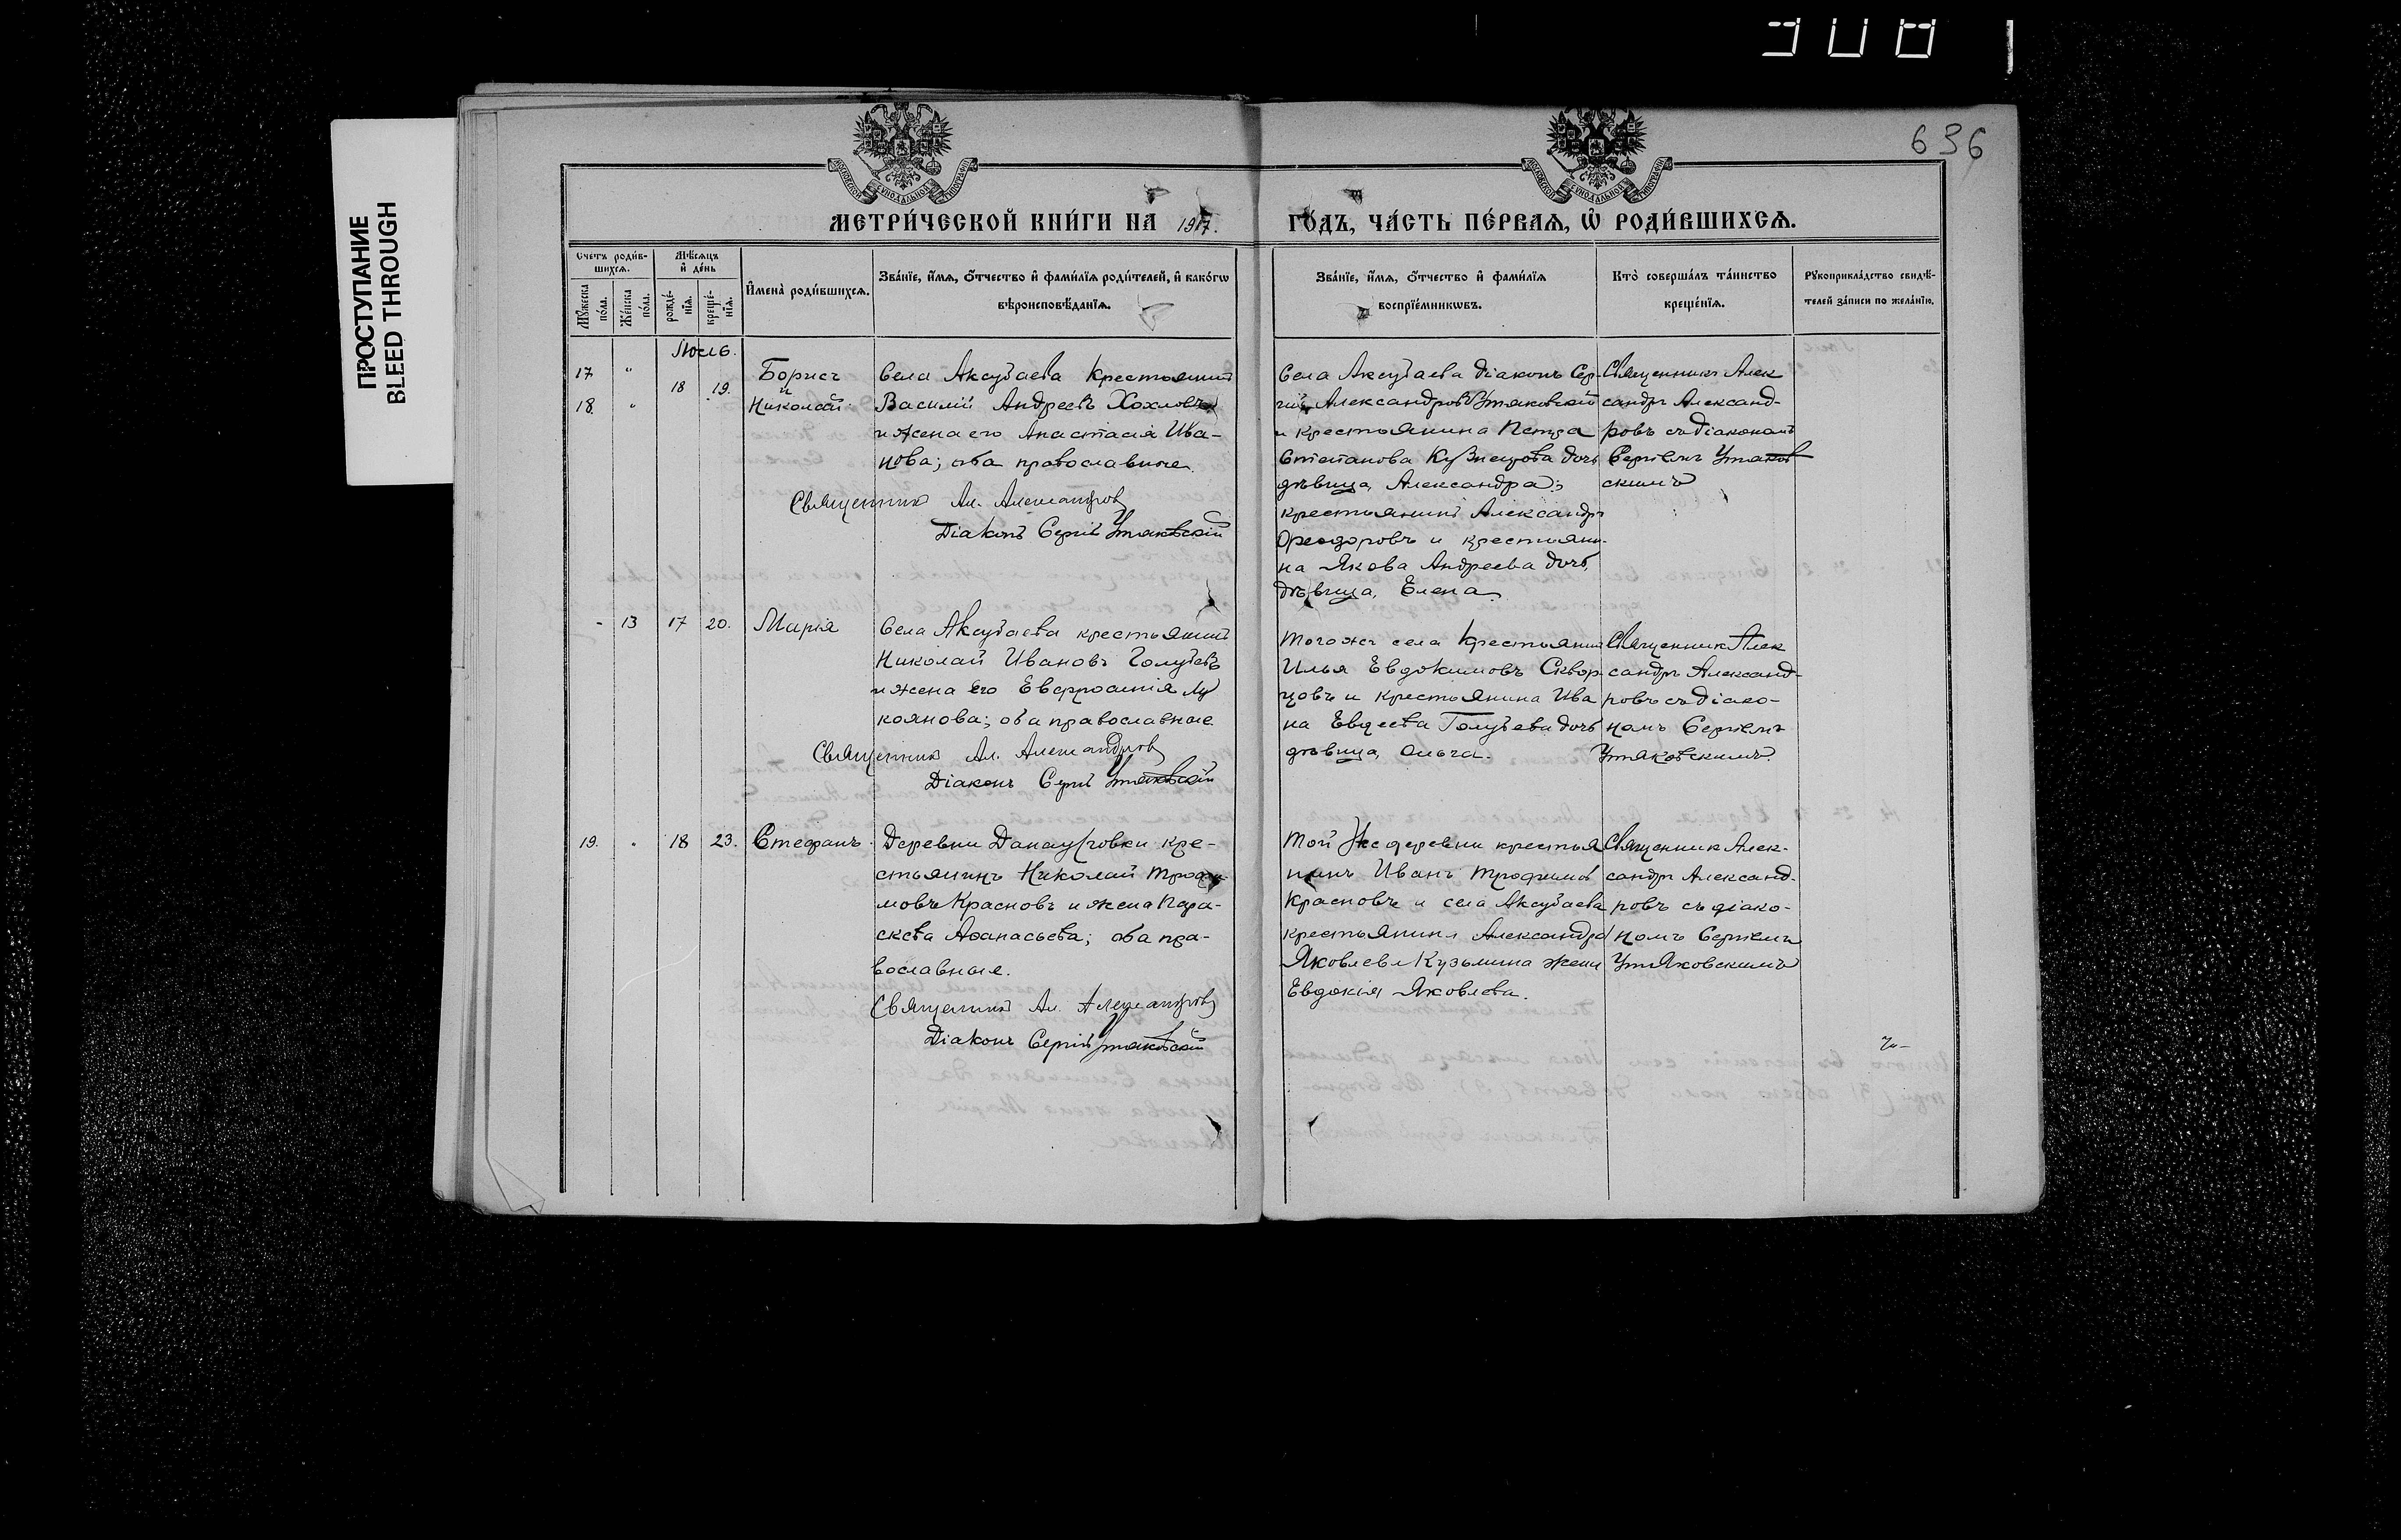 908
ПРОСТУПАНИЕ
BLEED THROUGH
636
МОСКОВСКОЙ СѴНОДАЛЬНОЙ ТИПОГРАФІИ
МОСКОВСКОЙ СѴНОДАЛЬНОЙ ТИПОГРАФІИ
МЕТРИ́ЧЕСКОЙ КНИ́ГИ НА 1917. ГО́ДЪ, ЧА́СТЬ ПЕ́РВАЯ, Ѡ РОДИ́ВШИХСЯ.
Счетъ роди́в-
шихся.
Му́жеска по́ла.
Же́нска по́ла.
Мѣ́сяцъ
и де́нь
рожде́-
нїя.
креще́-
нїя.
Имена̀ роди́вшихся.
Зва́нїе, и́мя, о́тчество и фами́лїя роди́телей, и како́гѡ
вѣроисповѣ́данїя.
Зва́нїе, и́мя, о́тчество и фами́лїя
воспрїе́мникѡвъ.
Кто̀ соверша́лъ та́инство
креще́нїя.
Рукоприкла́дство свидѣ́-
телей за́писи по жела́нїю.
17 "
18. "
18 19.
Борисъ
и
Николай
Села Аксубаева крестьянинъ
Василій Андреевъ Хохловъ
и жена его Анастасія Ива-
нова; оба православные.
Священникъ Ал. Александровъ
Діаконъ Сергій Утяковскій
Села Аксубаева діаконъ Сер-
гій Александровъ Утяковскій
и крестьянина Петра
Степанова Кузнецова дочь
дѣвица Александра;
крестьянинъ Александръ
Ѳеодоровъ и крестьяни-
на Якова Андреева дочь,
дѣвица, Елена.
Священникъ Алек
сандръ Александ-
ровъ съ діакономъ
Сергіемъ Утяков
скимъ
- 13 17 20. Марія
Села Аксубаева крестьянинъ
Николай Ивановъ Голубевъ
и жена его Евфросинія Лу
коянова; оба православные
Священникъ Ал. Александровъ
Діаконъ Сергій Утяковскій
Того же села крестьянинъ
Илья Евдокимовъ Сквор-
цовъ и крестьянина Ива
на Евдеева Голубева дочь
дѣвица, Ольга.
Священникъ Алек
сандръ Александ-
ровъ съ діако-
номъ Сергіемъ
Утяковскимъ.
19. " 18 23. Стефанъ.
Деревни кре-
стьянинъ Николай Трофи-
мовъ Красновъ и жена Пара-
скева Аѳанасьева; оба пра-
вославные.
Священникъ Ал. Александровъ
Діаконъ Сергій Утяковскій
Той же деревни крестья
нинъ Иванъ Трофимовъ
Красновъ и села Аксубаева
крестьянина Александра
Яковлева Кузьмина жена
Евдокія Яковлева.
Священникъ Алек-
сандръ Александ-
ровъ съ діако-
номъ Сергіемъ
Утяковскимъ